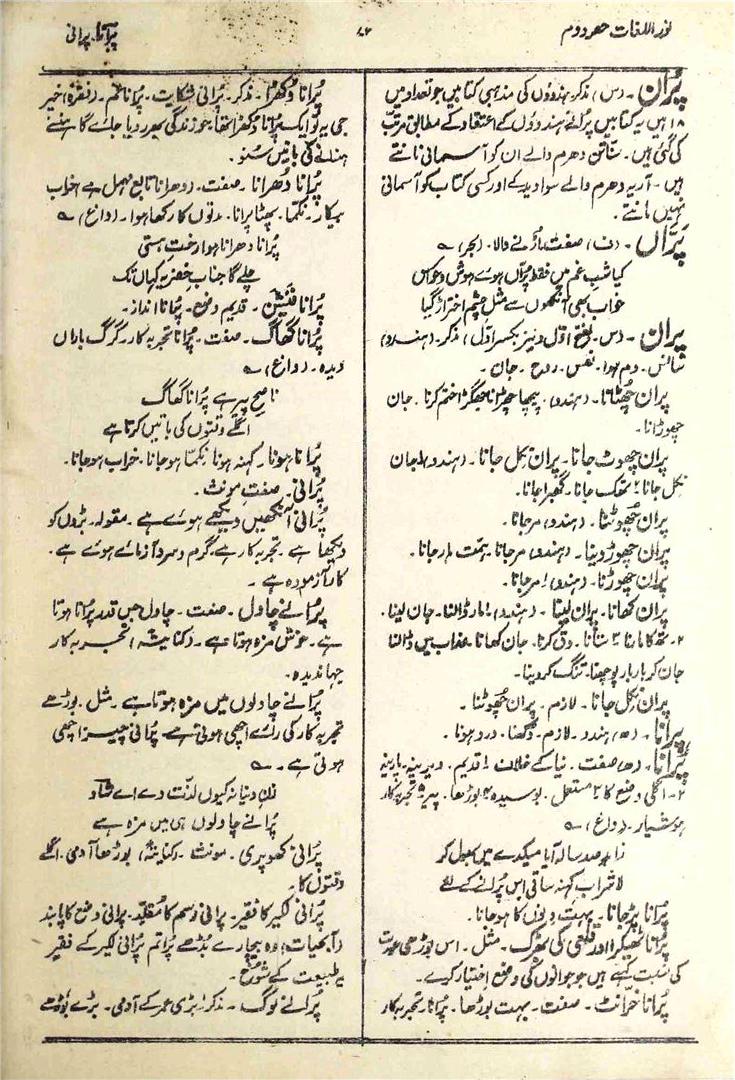 نور اللغات حصہ دوم
۸۲
پُرانا۔ پرانی
پُران۔ (س) مذکر۔ ہندوؤں کی مذہبی کتابیں جو تعداد میں
۱۸ ہیں یہ کتابیں پرانے ہندوؤں کے اعتقاد کے مطابق مرتب
کی گئی ہیں۔ سناتن دھرم والے ان کو آسمانی مانتے
ہیں۔ آریہ دھرم والے سوا وید کے اور کسی کتاب کو آسمانی
نہیں مانتے۔
پَرّاں۔ (ف) صفت۔ اُڑنے والا۔ (بحر) ؎
کیا شب غم میں فقط پرّاں ہوئے ہوش و حواس
خواب بھی آنکھوں سے مثل چشم اختر اڑ گیا
پران۔ (س۔ بفتح اوّل و نیز بکسر اوّل) مذکر۔ (ہندو)
سانس۔ دم۔ ہوا۔ نفس۔ روح۔ جان۔
پران چھٹانا۔ (ہندو) پیچھا چھڑانا جھگڑا ختم کرنا۔ جان
چھوڑانا۔
پران چھوٹ جانا۔ پران نکل جانا۔ (ہندو) ۱ جان
نکل جانا ۲ تھک جانا۔ گھبرا جانا۔
پران چھوٹنا۔ (ہندو) مر جانا۔
پران چھوڑ دینا۔ (ہندو) مر جانا۔ ہمت ہار جانا۔
پران چھوڑنا۔ (ہندو) مر جانا۔
پران کھانا۔ پران لینا۔ (ہندو) ۱ مار ڈالنا۔ جان لینا۔
۲۔ تھکا مارنا ۳ ستانا۔ دق کرنا۔ جان کھانا۔ عذاب میں ڈالنا
جان کر بار بار پوچھنا۔ تنگ کر دینا۔
پران نکل جانا۔ لازم۔ پران چھوٹنا۔
پرانا۔ (ھ) ہندو۔ لازم۔ دُکھنا۔ درد ہونا۔
پُرانا۔ (ھ) صفت۔ نیا کے خلاف ۱ قدیم۔ دیرینہ۔ پارینہ
۲۔ اگلی وضع کا ۳ مستعمل۔ بوسیدہ ۴ بوڑھا۔ پیر ۵ تجربہ کار
ہوشیار۔ (داغ) ؎
زاہد صد سالہ آیا میکدے میں بھول کر
لا شراب کہنہ ساقی اس پُرانے کے لئے
پُرانا پڑ جانا۔ بہت دنوں کا ہو جانا۔
پُرانا ٹھیکرا اور قلعی کی بھڑک۔ مثل۔ اس بوڑھی عورت
کی نسبت کہتے ہیں جو جوانوں کی وضع اختیار کرے۔
پُرانا خرانٹ۔ صفت۔ بہت بوڑھا۔ پُرانا تجربہ کار
پُرانا دُکھڑا۔ مذکر۔ پرانی شکایت۔ پُرانا غم۔ (فقرہ) خیر
جی یہ تو ایک پُرانا دُکھڑا تھا۔ جو زندگی بھر رویا جائے گا ہنسنے
ہنسانے کی باتیں سنو۔
پُرانا دُھرانا۔ صفت۔ (دھرانا تابع مہمل ہے) خراب
بیکار۔ نکما۔ پھٹا پرانا۔ مدتوں کا رکھا ہوا۔ (داغ) ؎
پُرانا دھرانا ہوا رختِ ہستی
چلے گا جناب خضر یہ کہاں تک
پُرانا فیشن۔ قدیم وضع۔ پُرانا انداز۔
پُرانا گھاگ۔ صفت۔ پُرانا تجربہ کار۔ گرگ باراں
دیدہ۔ (داغ) ؎
ناصحِ پیر ہے پُرانا گھاگ
اگلے وقتوں کی باتیں کرتا ہے
پُرانا ہونا۔ کہنہ ہونا۔ نکما ہو جانا۔ خراب ہو جانا۔
پُرانی۔ صفت مونث۔
پُرانی آنکھیں دیکھے ہوئے ہے۔ مقولہ۔ بڑوں کو
دیکھا ہے۔ تجربہ کار ہے گرم و سرد آزمائے ہوئے ہے۔
کار آزمودہ ہے۔
پُرانے چاول۔ صفت۔ چاول جس قدر پُرانا ہوتا
ہے۔ خوش مزہ ہوتا ہے۔ (کنایتہً) تجربہ کار
جہاندیدہ۔
پُرانے چاولوں میں مزہ ہوتا ہے۔ مثل۔ بوڑھے
تجربہ کار کی رائے اچھی ہوتی ہے۔ پُرانی چیز اچھی
ہوتی ہے۔ ؎
زنِ دنیا نہ کیوں لذّت دے اے شاد
پُرانے چاولوں ہی میں مزہ ہے
پُرانی کھوپری۔ مونث۔ (کنایتہً) بوڑھا آدمی۔ اگلے
وقتوں کا۔
پُرانی لکیر کا فقیر۔ پرانی رسم کا مُقلّد۔ پرانی وضع کا پابند
(آبحیات) وہ بیچارے بڈھے پُراتم پُرانی لکیر کے فقیر
یہ طبیعت کے شوخ۔
پُرانے لوگ۔ مذکر ۱ بڑی عمر کے آدمی۔ بڑے بوڑھے